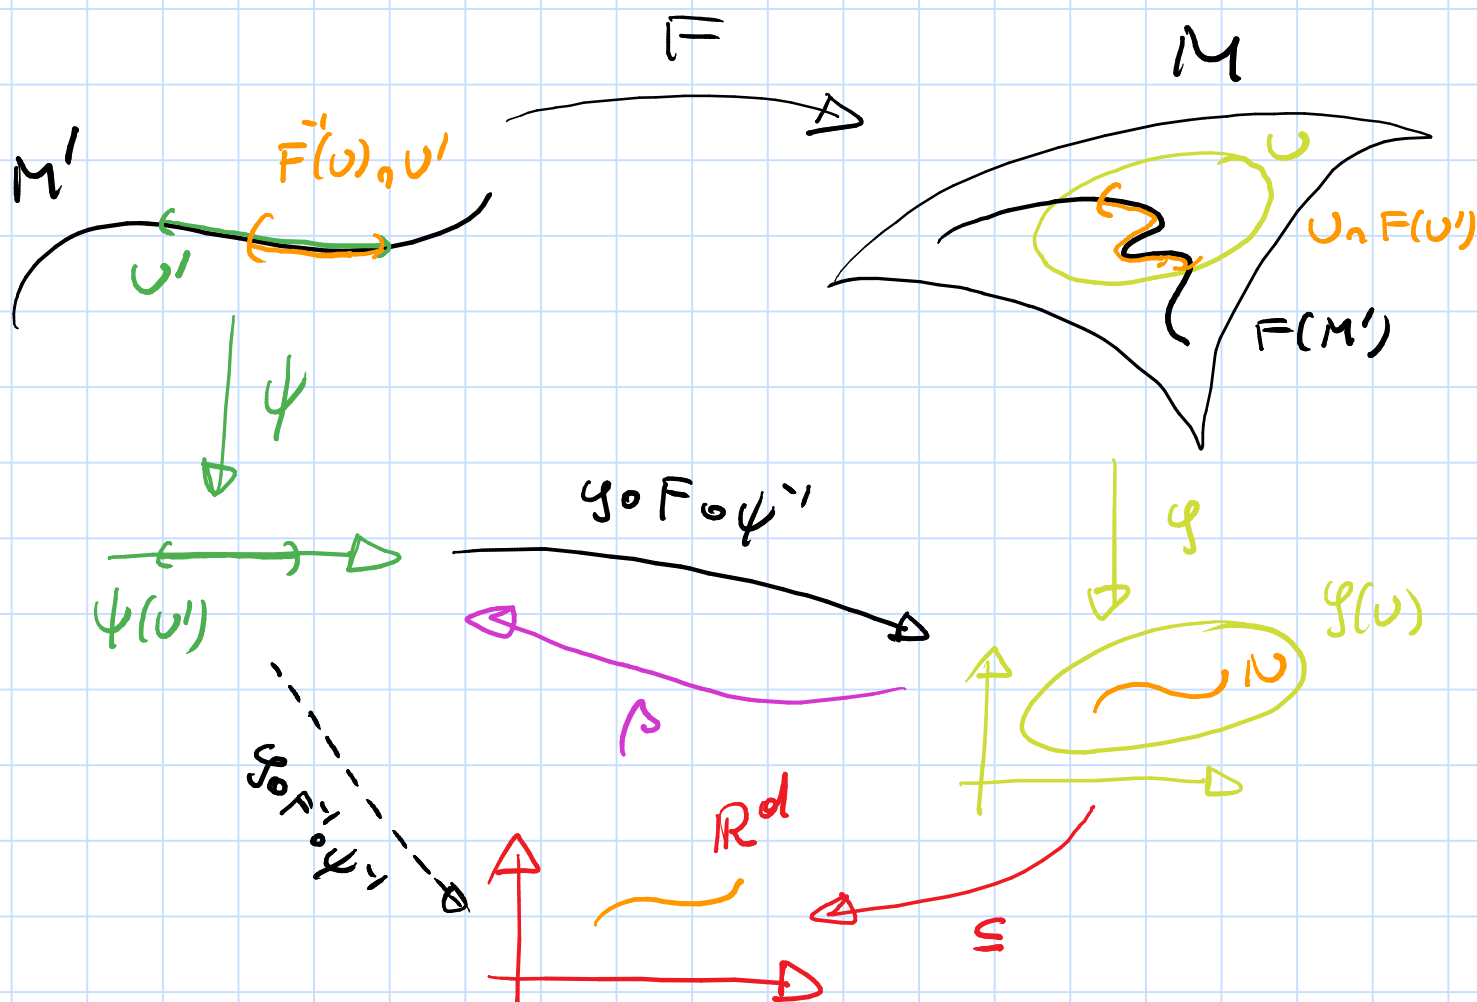 F
M
M'
F⁻¹(U)∩U'
U
U∩F(U')
U'
F(M')
ψ
φ∘F∘ψ⁻¹
φ
ψ(U')
φ(U)
N
β
φ∘F⁻¹∘ψ⁻¹
ℝᵈ
⊆